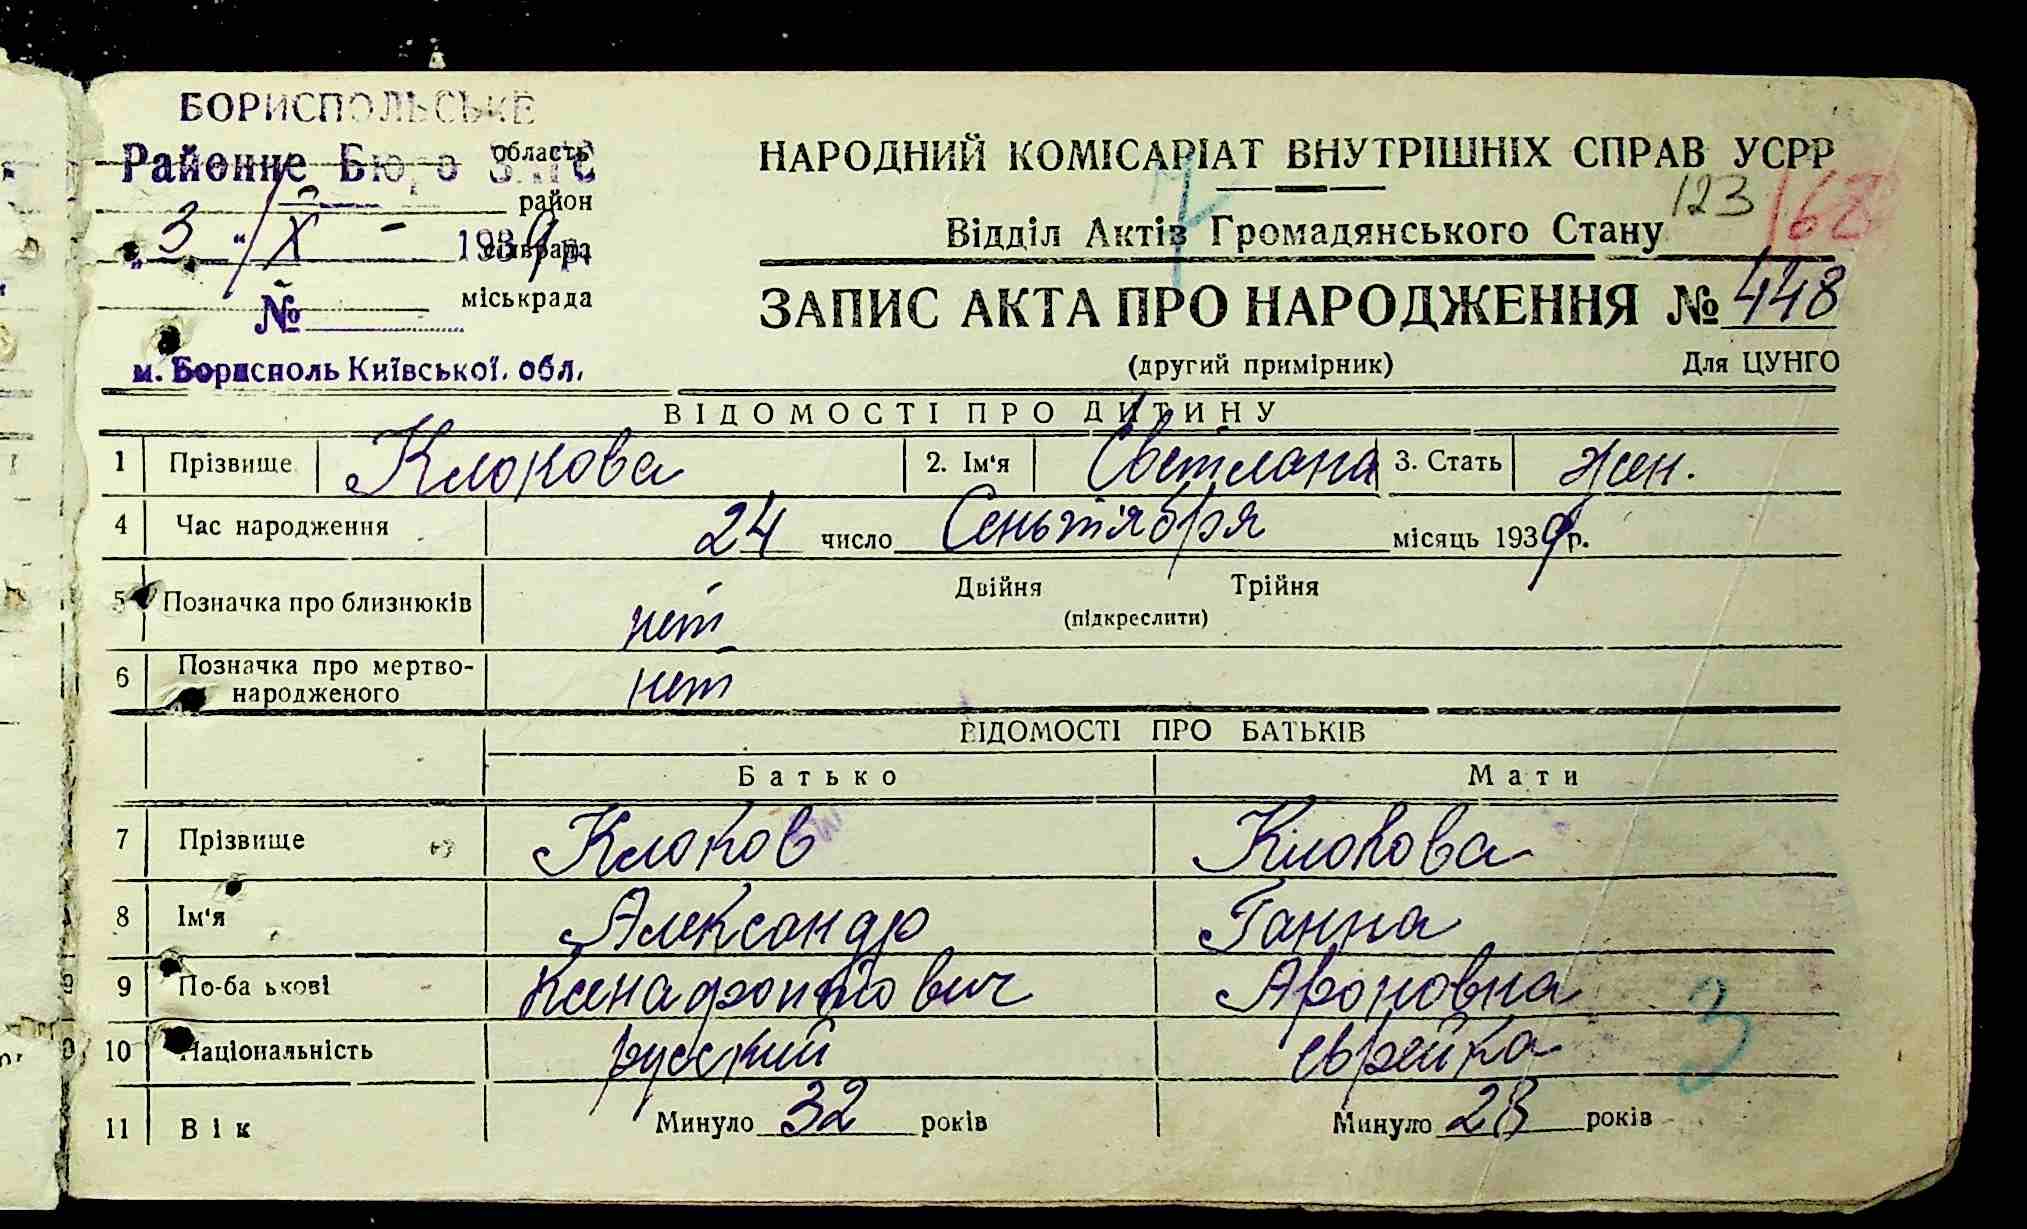 БОРИСПОЛЬСЬКЕ
Районне Бюро ЗАГС область
район
3 " X - 1939 р. сільрада
№ міськрада
м. Борисполь Київської обл.
НАРОДНИЙ КОМІСАРІАТ ВНУТРІШНІХ СПРАВ УСРР
123
Відділ Актів Громадянського Стану
ЗАПИС АКТА ПРО НАРОДЖЕННЯ № 448
(другий примірник) Для ЦУНГО
ВІДОМОСТІ ПРО ДИТИНУ
1 Прізвище Клокова 2. Ім'я Светлана 3. Стать жен.
4 Час народження 24 число Сеньтября місяць 1939 р.
5 Позначка про близнюків нет Двійня Трійня
(підкреслити)
6 Позначка про мертво-
народженого нет
ВІДОМОСТІ ПРО БАТЬКІВ
Батько Мати
7 Прізвище Клоков Клокова
8 Ім'я Александр Ганна
9 По-ба ькові Ксенафонтович Ароновна
10 Національність русский еврейка
11 Вік Минуло 32 років Минуло 28 років
3